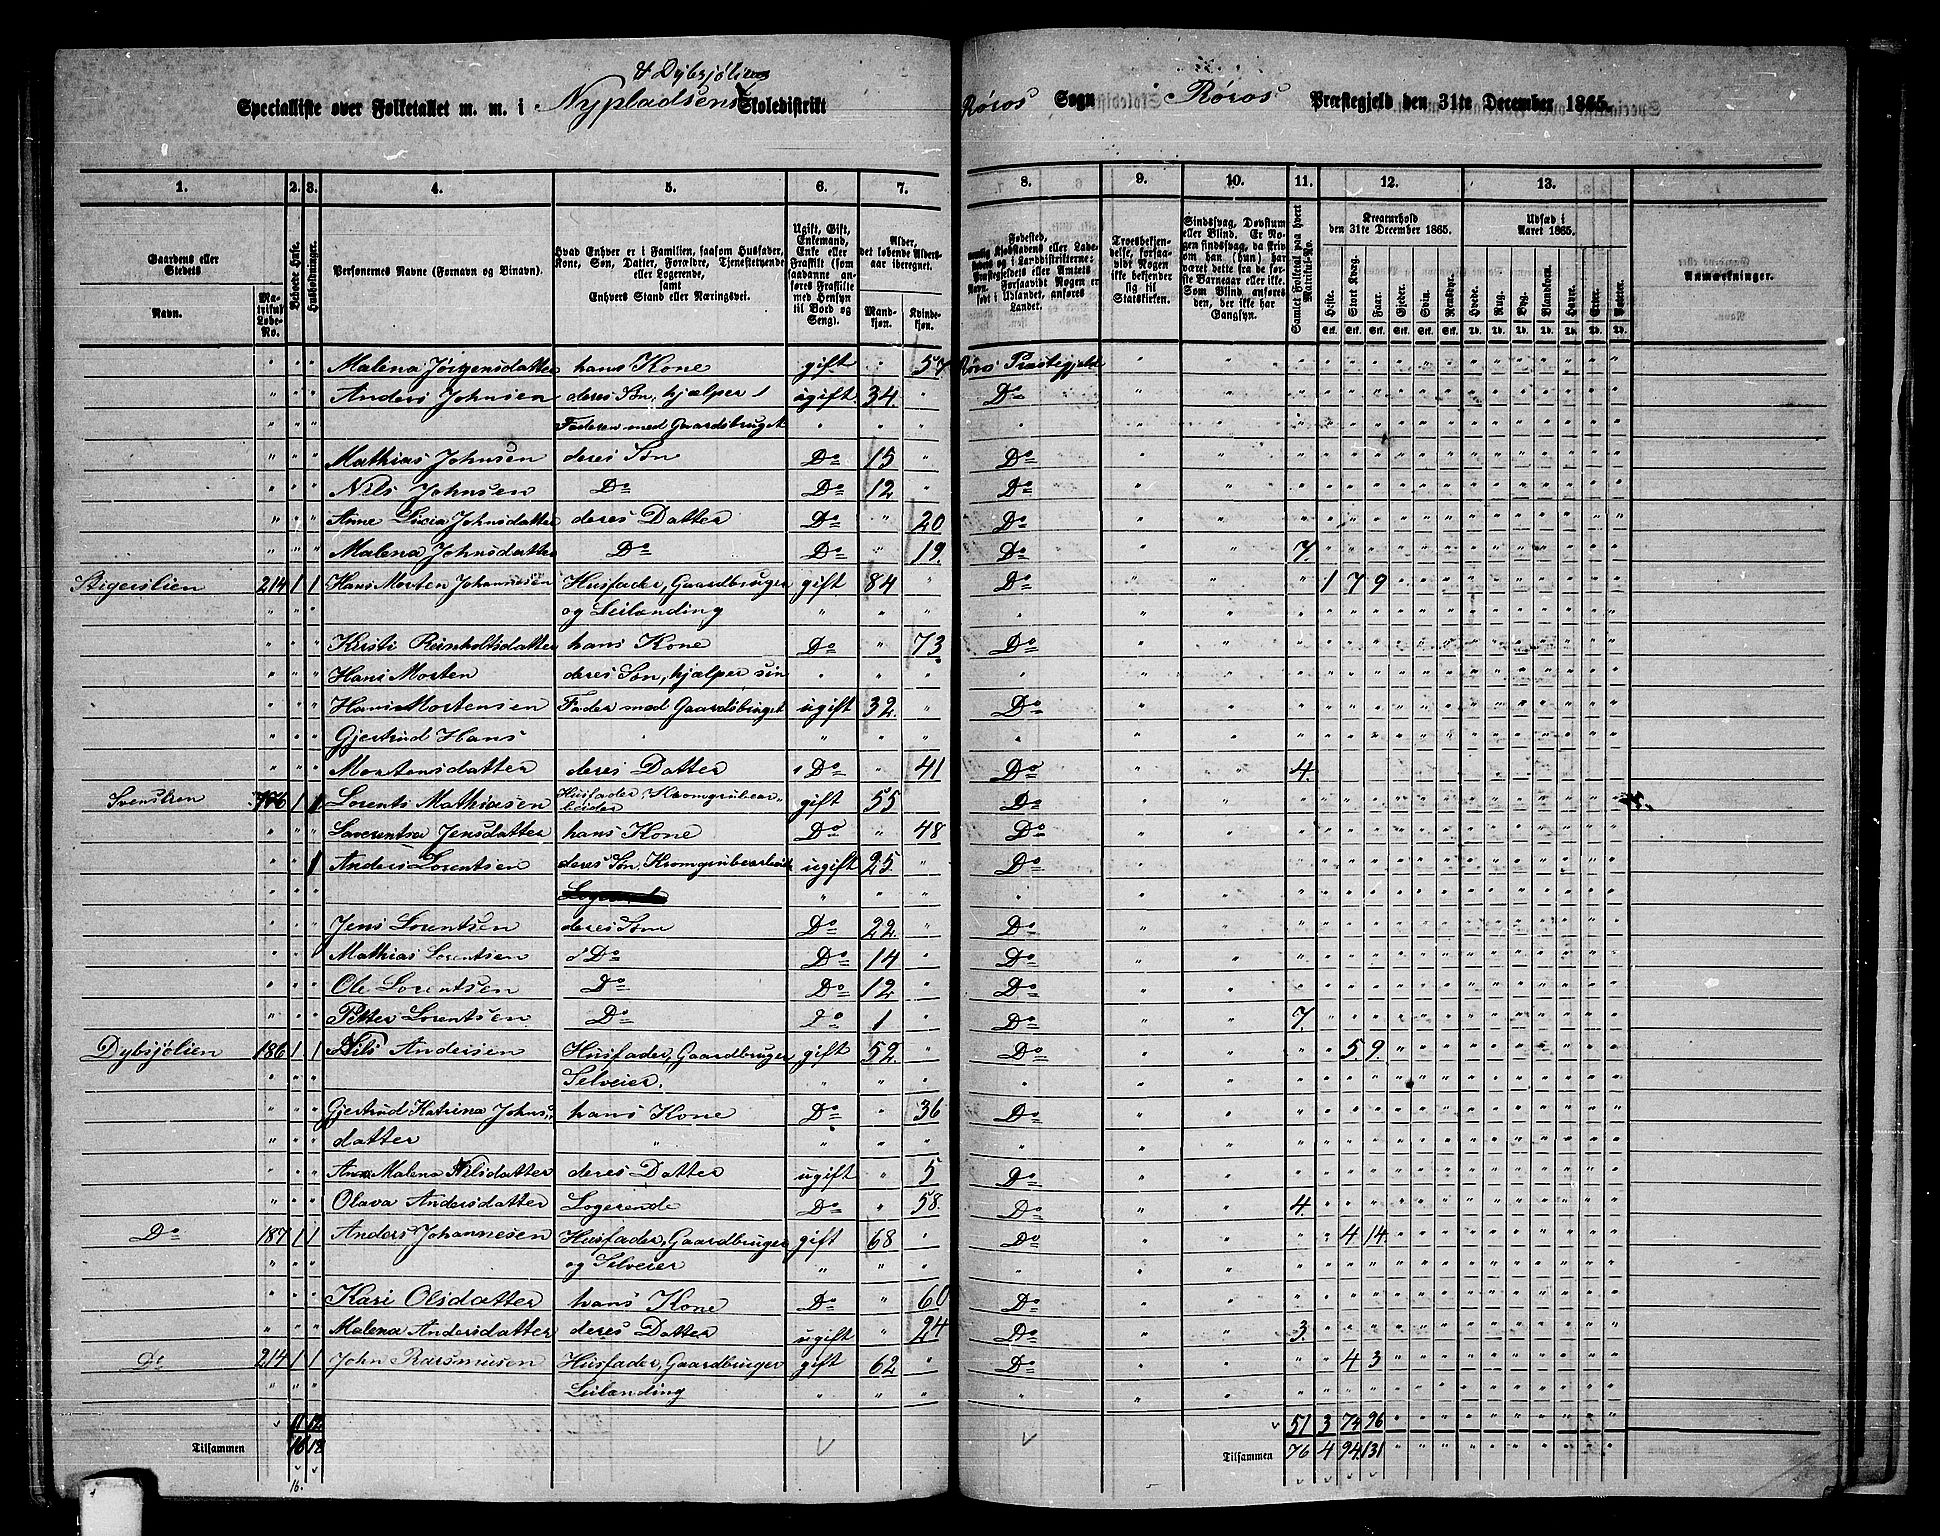 & Dybsjølien
Specialliste over Folketallet m. m. i Nypladsens Skoledistrikt Røros Sogn i Røros Præstegjeld den 31te December 1865.
1. 2. 3. 4. 5. 6. 7. 8. 9. 10. 11. 12. 13.
Gaardens eller Stedets Navn. Matrikul Løbe-No. Beboede Huse. Husholdninger. Personernes Navne (Fornavn og Binavn). Hvad Enhver er i Familien, saasom Husfader, Kone, Søn, Datter, Forældre, Tjenestetyende eller Logerende, samt Enhvers Stand eller Næringsvei. Ugift, Gift, Enkemand, Enke eller Fraskilt (som saadanne anføres Fraskilte med Hensyn til Bord og Seng). Alder, det løbende Aldersaar iberegnet. Mandkjøn. Kvindekjøn. Fødested, Troesbekjendelse, forsaavidt Nogen ikke bekjender sig til Statskirken. Sindssvag, Døvstum eller Blind. Samlet Folketal paa hvert Matrikul-No. Kreaturhold den 31te December 1865. Heste. Stort Kvæg. Faar. Gjeder. Svin. Rensdyr. Udsæd i Aaret 1865. Hvede. Rug. Byg. Blandkorn. Havre. Erter. Poteter. Anmærkninger.
Malena Jørgensdatter hans Kone gift 57 Røros Præstegjeld
Anders Johnsen deres Søn, hjælper ugift 34 Do
Faderen med Gaardsbruget
Mathias Johnsen deres Søn Do 15 Do
Nils Johnsen Do Do 12 Do
Anne Licia Johnsdatter deres Datter Do 20 Do
Malena Johnsdatter Do Do 19 Do 7
214 1 1 Hans Morten Johannesen Husfader, Gaardbruger gift 84 Do 1 7 9
og Leilending
Kirsti Reinholtsdatter hans Kone Do 73 Do
Hans Morten deres Søn, hjælper sin
Hans Mortensen Fader med Gaardsbruget ugift 32 Do
Gjertrud Hans
Mortensdatter deres Datter Do 41 Do 4
Svenslien 1 1 Lorents Mathiasen Husfader, Kromgrubearbeider gift 55 Do
Laverentsa Jensdatter hans Kone Do 48 Do
1 Anders Lorentsen deres Søn Kromgrubearbeider ugift 25 Do
Logerende
Jens Lorentsen deres Søn Do 22 Do
Mathias Lorentsen Do Do 14 Do
Ole Lorentsen Do Do 12 Do
Petter Lorentsen Do Do 1 Do 7
Dybsjølien 186 1 1 Nils Andersen Husfader, Gaardbruger gift 52 Do 5 9
Selveier.
Gjertrud Katrina Johns- hans Kone Do 36 Do
datter
Ane Malena Nilsdatter deres Datter ugift 5 Do
Olava Andersdatter Logerende Do 58 Do 4
Do 187 1 1 Anders Johannesen Husfader, Gaardbruger gift 68 Do 4 14
og Selveier
Kari Olsdatter hans Kone Do 60 Do
Malena Andersdatter deres Datter ugift 24 Do 3
Do 214 1 1 John Rasmusen Husfader, Gaardbruger gift 62 Do 4 3
Leilending
11 12 51 3 74 96
Tilsammen 16 18 Tilsammen 76 4 94 131
16.